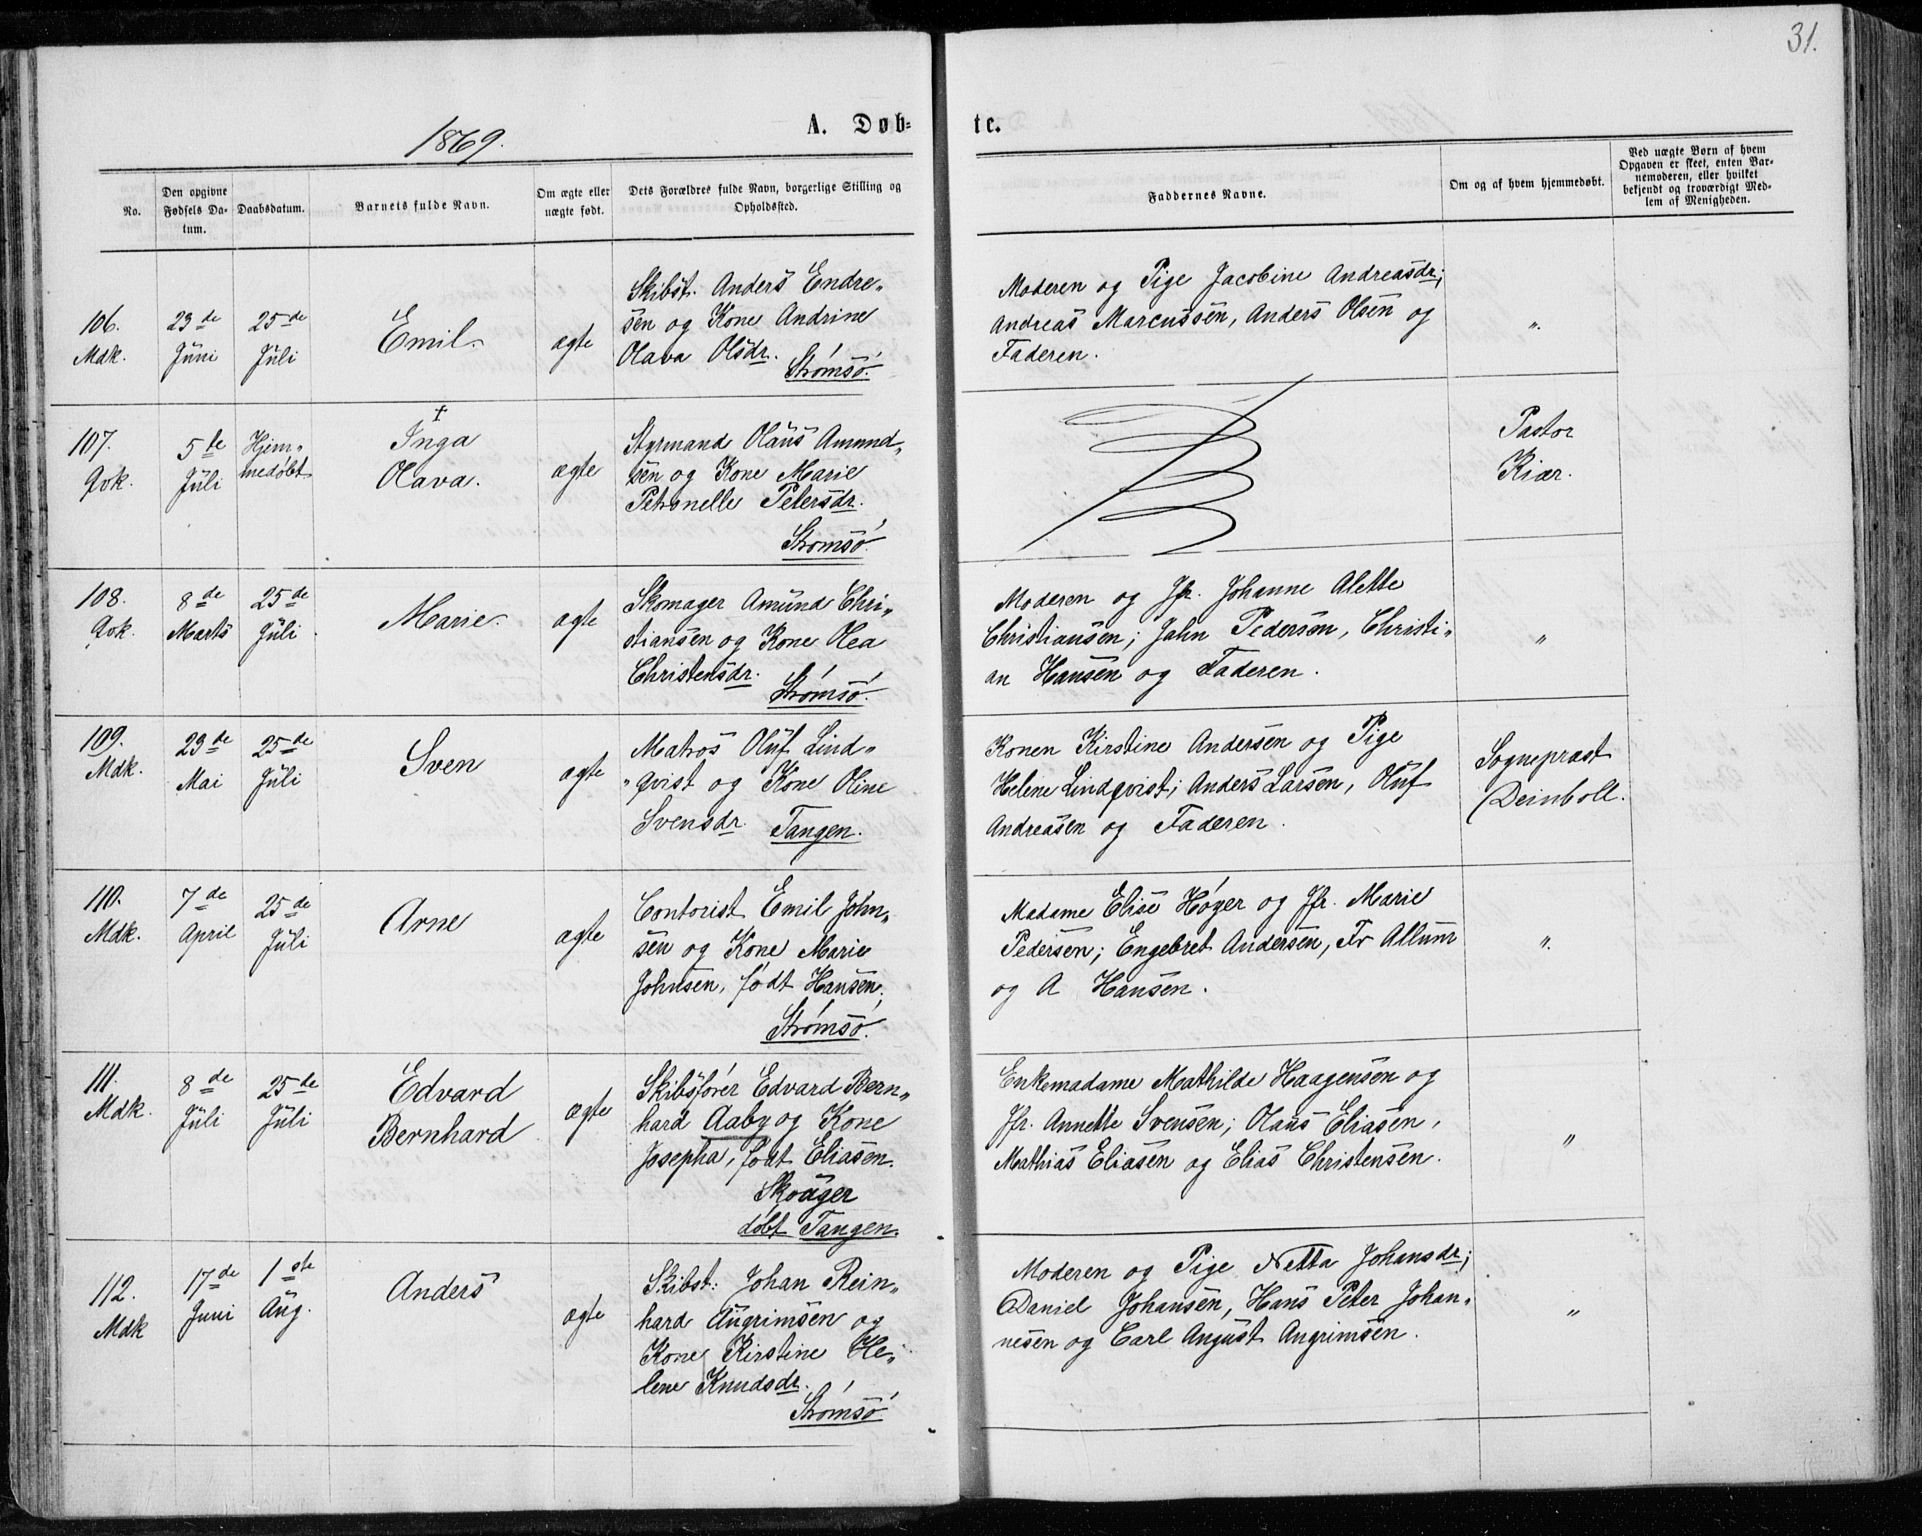 31.
1869.
A. Døb-
te.
No.
Den opgivne
Fødsels Da-
tum.
Daabsdatum.
Barnets fulde Navn.
Om ægte eller
uægte født.
Dets Forældres fulde Navn, borgerlige Stilling og
Opholdssted.
Faddernes Navne.
Om og af hvem hjemmedøbt.
Ved uægte Børn af hvem
Opgaven er skeet, enten Bar-
nemoderen, eller hvilket
bekjendt og troværdigt Med-
lem af Menigheden.
106.
Mdk.
23de
Juni
25de
Juli
Emil.
ægte
Skibst. Anders Endre„
sen og Kone Andrine
Olava Olsdr.
Strømsø.
Moderen og Pige Jacobine Andreasdr;
Andreas Marcussen, Anders Olsen og
Faderen.
„
107.
Qvk.
5te
Juli
Hjem„
medøbt
†
Inga
Olava.
ægte
Styrmand Olaus Amund„
sen og Kone Marie
Petronelle Petersdr.
Strømsø.
Pastor
Kiær.
108.
Qvk.
8de
Marts
25de
Juli.
Marie.
ægte
Skomager Amund Chri„
stiansen og Kone Olea
Christensdr.
Strømsø.
Moderen og Jfr. Johanne Alette
Christiansen; Jahn Pedersen, Christi„
an Hansen og Faderen.
„
109.
Mdk.
23de
Mai
25de
Juli
Sven
ægte
Matros Oluf Lind„
„qvist og Kone Oline
Svensdr. Tangen.
Konen Kirstine Andersen og Pige
Helene Lindqvist; Anders Larsen, Oluf
Andreasen og Faderen.
Sognepræst
Deinboll.
110.
Mdk.
7de
April
25de
Juli
Arne
ægte
Contorist Emil John„
sen og Kone Marie
Johnsen, født Hansen.
Strømsø.
Madame Elise Høyer og Jfr. Marie
Pedersen; Engebret Andersen, Fr Allum
og A Hansen.
„
111.
Mdk.
8de
Juli
25de
Juli
Edvard
Bernhard
ægte
Skibsfører Edvard Bern„
hard Aaby og Kone
Josepha, født Eliasen.
Skouger
døbt Tangen.
Enkemadame Mathilde Haagensen og
Jfr. Annette Svensen; Olaus Eliasen,
Mathias Eliasen og Elias Christensen.
„
112.
Mdk
17de
Juni
1ste
Aug.
Anders
ægte
Skibst: Johan Rein„
hard Augrimsen og
Kone Kirstine He„
lene Knudsdr.
Strømsø
Moderen og Pige Netta Johansdr;
Daniel Johansen, Hans Peter Johan„
nesen og Carl August Angrimsen.
„